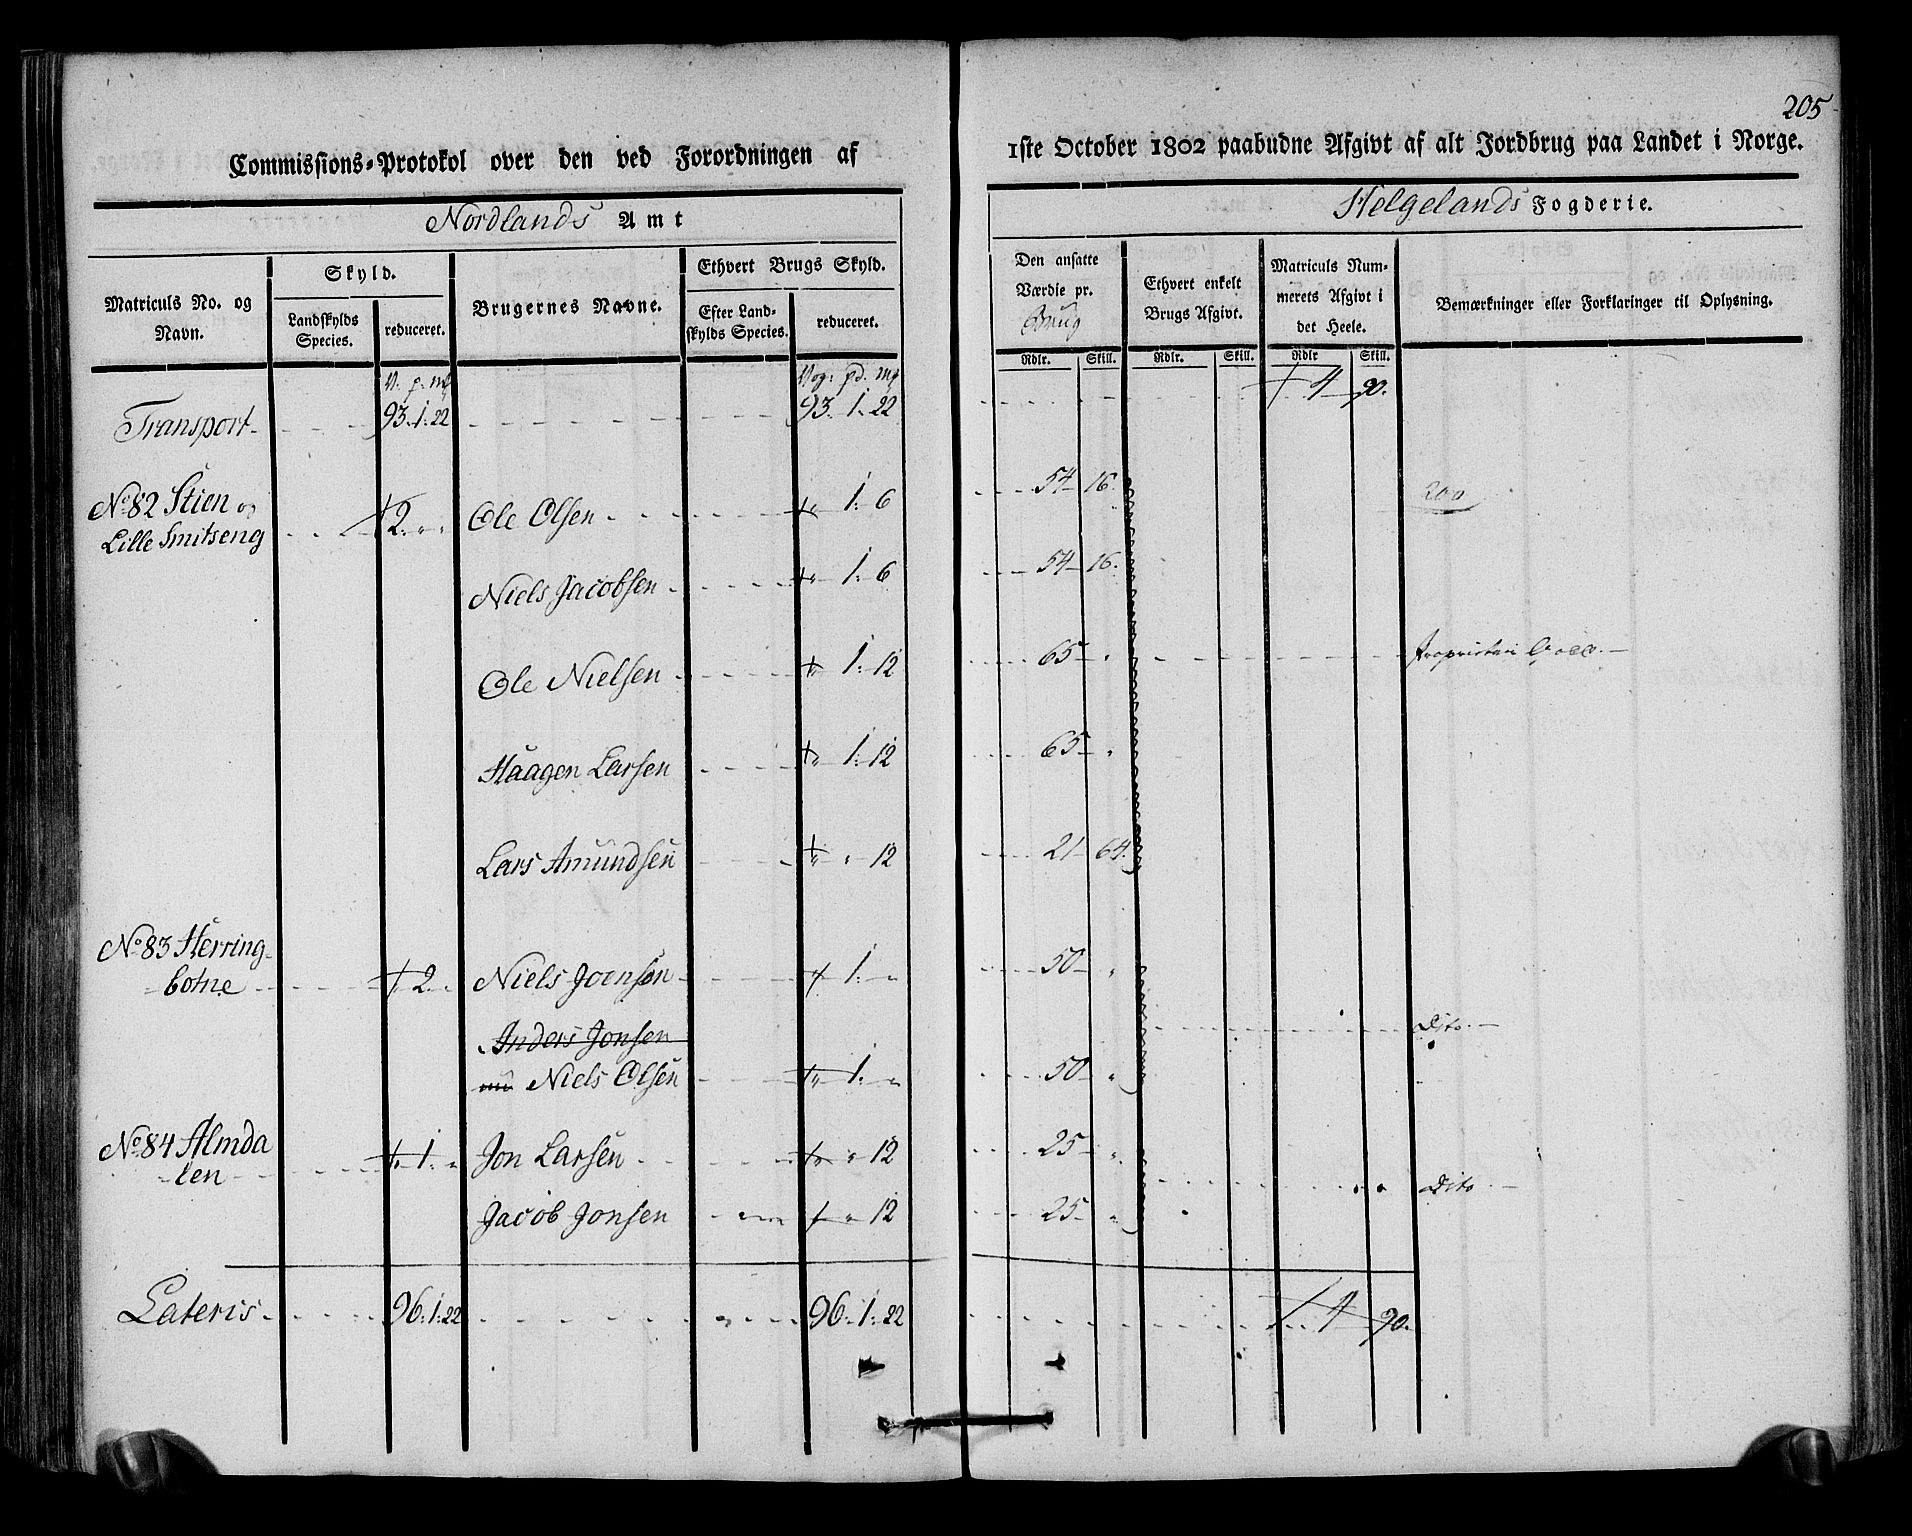 205
Commissions-Protokol over den ved Forordningen af 1ste October 1802 paabudne Afgivt af alt Jordbrug paa Landet i Norge.
Nordlands Amt
Helgelands Fogderie.
Matriculs No. og Navn.
Skyld.
Landskylds Species.
reduceret.
Brugernes Navne.
Ethvert Brugs Skyld.
Efter Landskylds Species.
reduceret.
Den ansatte Værdie pr. Brug
Ethvert enkelt Brugs Afgivt.
Matriculs Nummerets Afgivt i det Heele.
Bemærkninger eller Forklaringer til Oplysning.
Rdlr. Skill. Rdlr. Skill. Rdlr Skill.
V. p. mk Vog: pd. mk
Transport 93. 1. 22 93. 1. 22 4 90.
No 82 Stien og 2. Ole Olsen 1. 6 54 16. 200
Lille Smitseng
Niels Jacobsen 1. 6 54 16.
Ole Nielsen 1. 12 65 Proprietair
Haagen Larsen 1. 12 65
Lars Amundsen 12 21 64.
No 83 Herring-
botne 2. Niels Joensen 1. 50
Anders Jonsen Dito.
nu Niels Olsen 1. 50
No 84 Almda
len 1. Jon Larsen 12 25
Dito
Jacob Jonsen 12 25
Lateris 96. 1. 22 96. 1. 22 4 90.